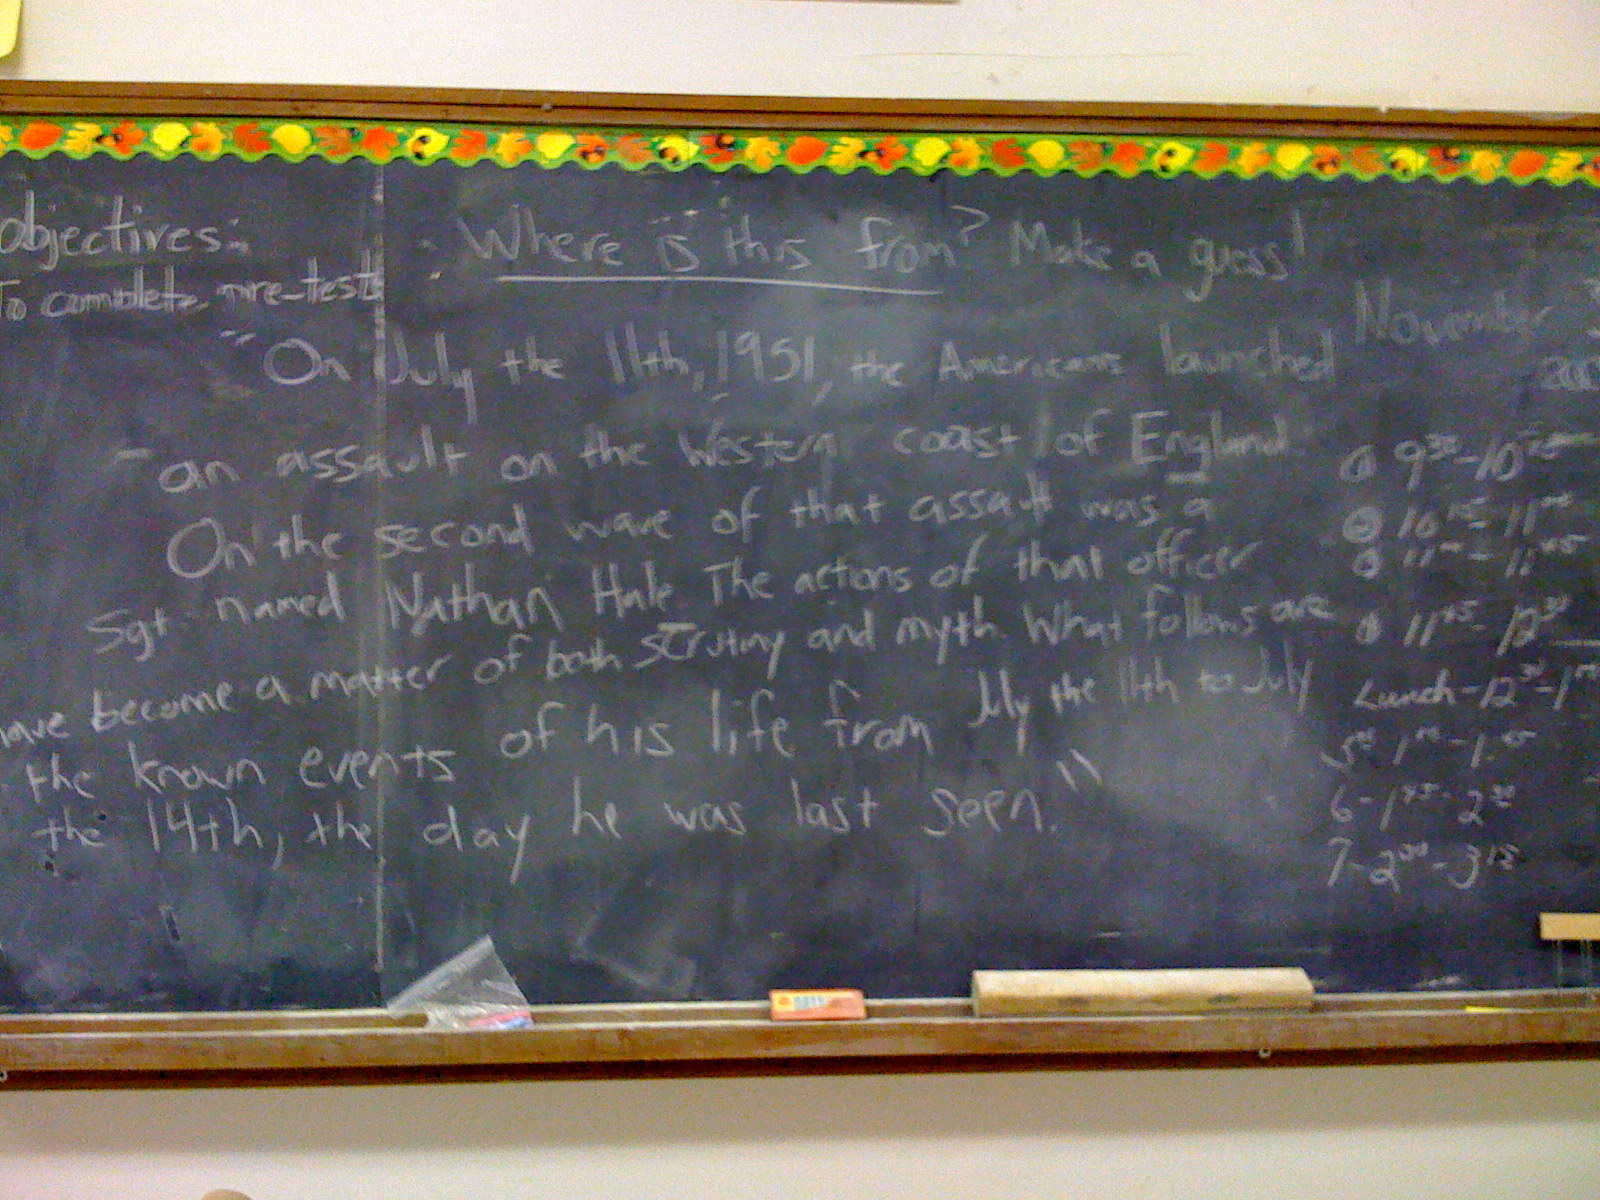 objectives:
To complete pre-test
Where is this from? Make a guess!
"On July the 11th, 1951, the Americans launched
an assault on the Western coast of England.
On the second wave of that assault was a
Sgt named Nathan Hale. The actions of that officer
have become a matter of both scrutiny and myth. What follows are
the known events of his life from July the 11th to July
the 14th, the day he was last seen."
November
200
1 9³⁰-10¹⁵
2 10¹⁵-11⁰⁰
3 11⁰⁰-11⁴⁵
4 11⁴⁵-12³⁰
Lunch-12³⁰-1⁰⁰
5 1⁰⁰-1⁴⁵
6-1⁴⁵-2³⁰
7-2³⁰-3¹⁵